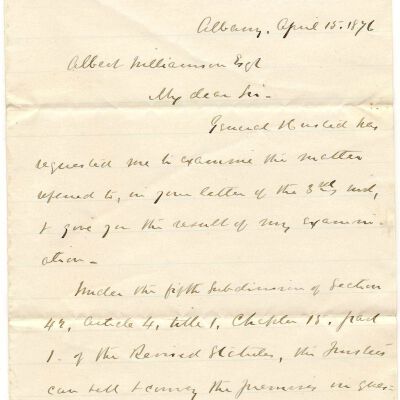 Albany, April 15. 1876
Albert Williamson Esqr
My dear Sir -
General Husted has
requested me to examine the matter
refered to, in your letter of the 3rd inst,
& give you the result of my examin-
ation -
Under the fifth Subdivision of Section
42, Article 4, title 1, Chapter 15. part
1. of the Revised Statutes, the Trustees
can sell & convey the premises in ques-